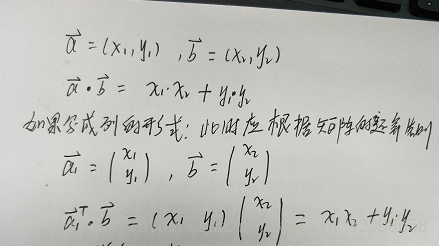 a⃗ = (x₁, y₁) , b⃗ = (x₂, y₂)
a⃗ · b⃗ = x₁·x₂ + y₁·y₂
如果写成列的形式: 此时应根据矩阵的运算法则
a⃗₁ = (x₁ y₁) , b⃗ = (x₂ y₂)
a⃗₁ᵀ · b⃗ = (x₁ y₁) (x₂ y₂) = x₁x₂ + y₁·y₂